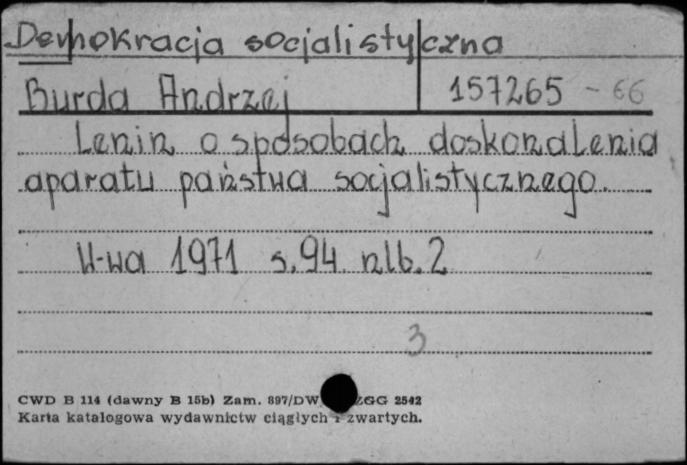 Demokracja socjalistyczna
Burda Andrzej 157265 - 66
Lenin o sposobach doskonalenia
aparatu państwa socjalistycznego.
W-wa 1971 s. 94 nlb. 2
3
CWD B 114 (dawny B 15b) Zam. 897/DW ZGG 2542
Karta katalogowa wydawnictw ciągłych i zwartych.